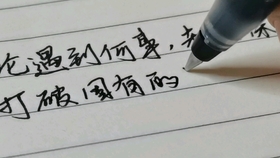 论遇到何事，
打破固有的